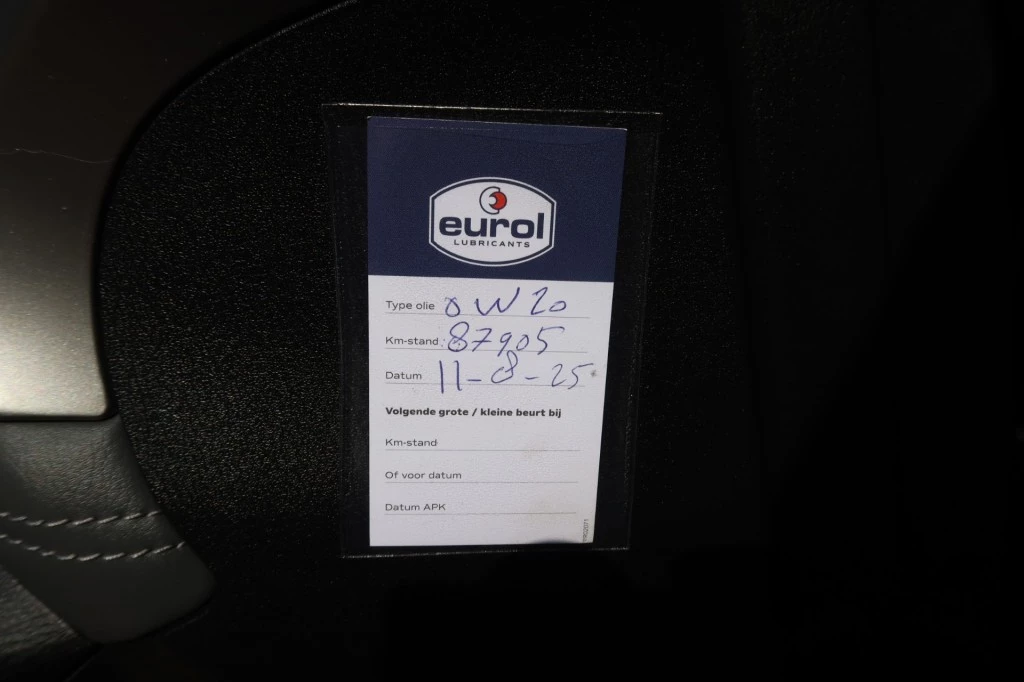 eurol
LUBRICANTS
Type olie 0W20
Km-stand: 87905
Datum 11-8-25
Volgende grote / kleine beurt bij
Km-stand
Of voor datum
Datum APK